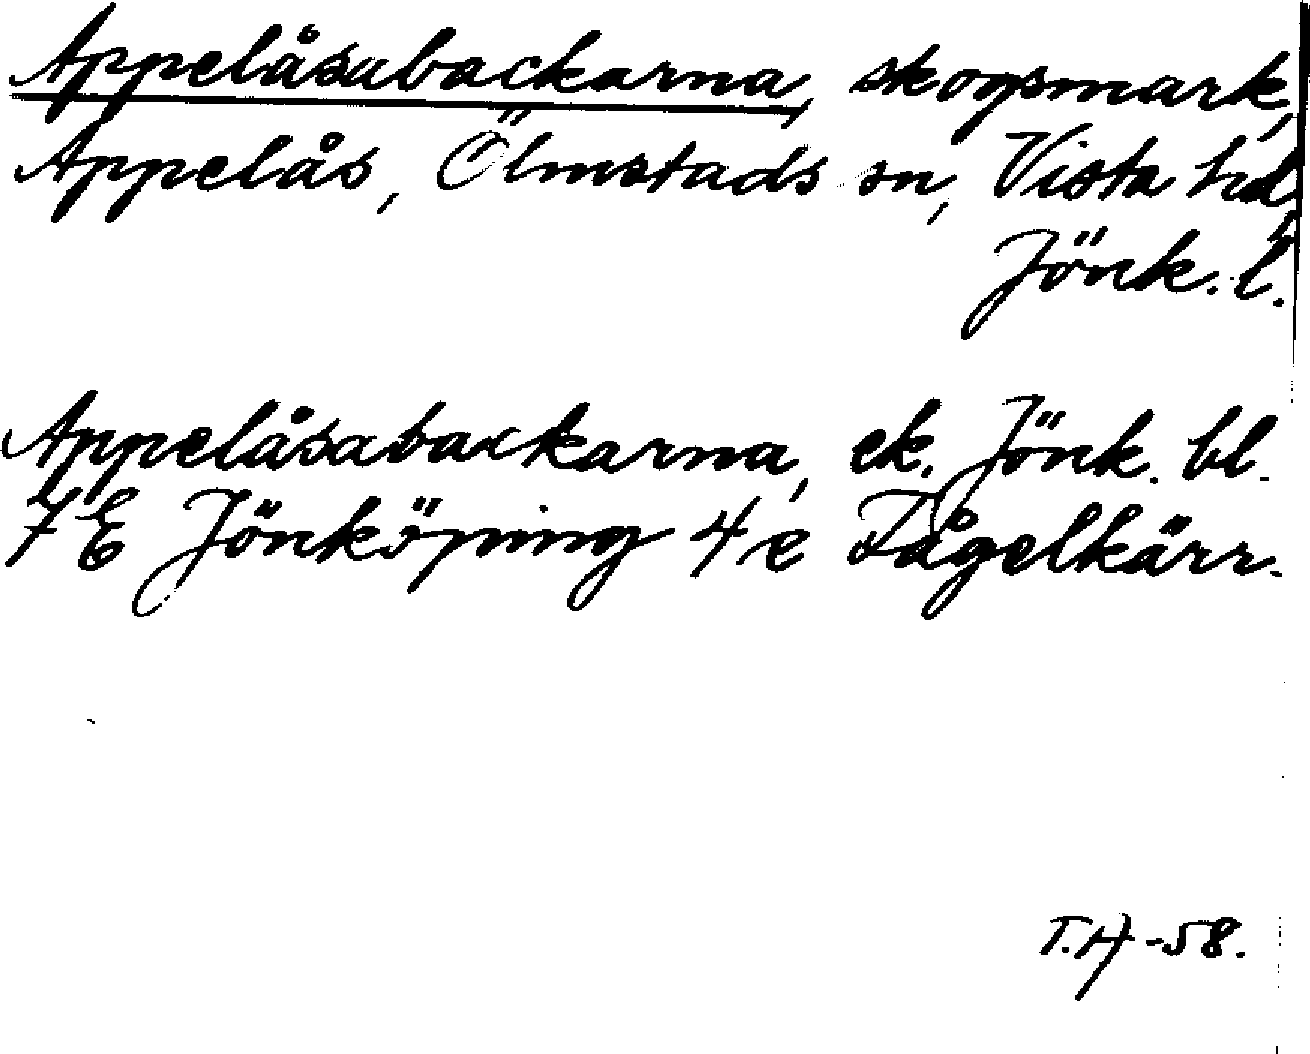 Appelåsabackarna, skogsmark,
Appelås, Ölmstads sn, Vista hd,
Jönk. l.
Appelåsabackarna, ek. Jönk. bl.
7 E Jönköping 4 e Fågelkärr.
T.H -58.